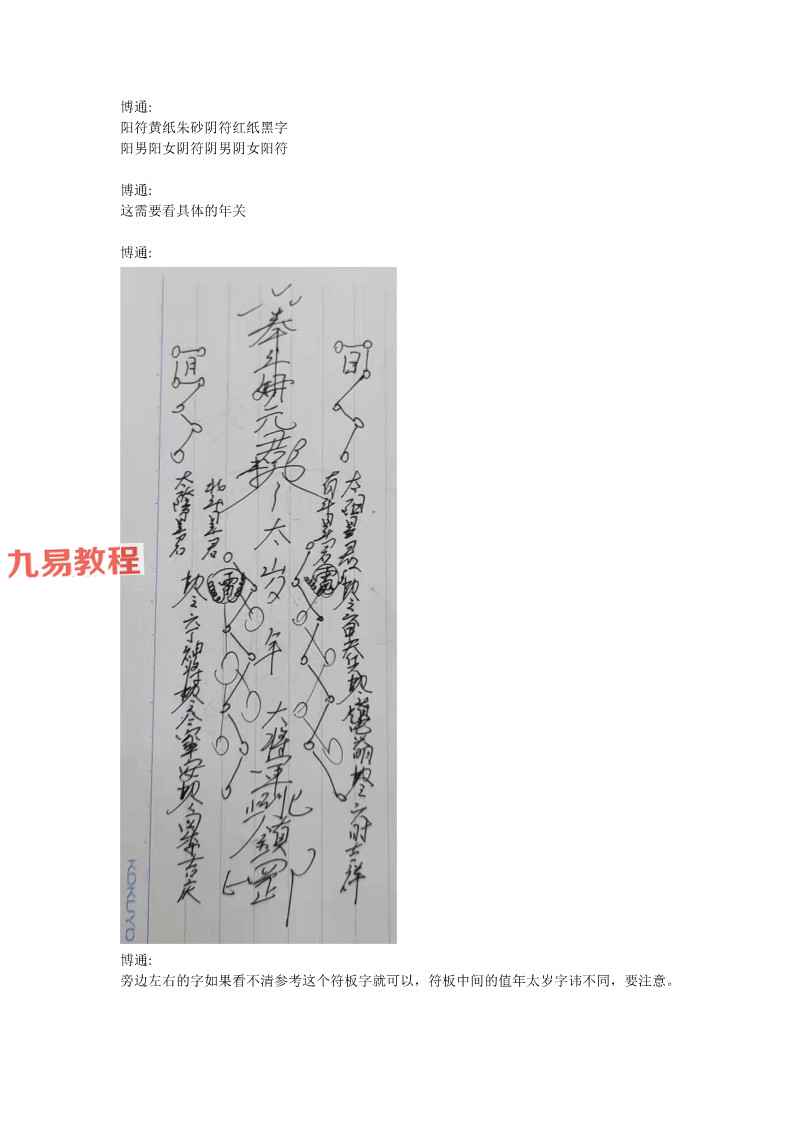 博通:
阳符黄纸朱砂阴符红纸黑字
阳男阳女阴符阴男阴女阳符
博通:
这需要看具体的年关
博通:
日
太阳星君
六时吉祥
奉斗姆元君
太岁年
大将军到此镇罡
月
北斗星君
太阴星君
六丁神将
九易教程
KOKUYO
博通:
旁边左右的字如果看不清参考这个符板字就可以，符板中间的值年太岁字讳不同，要注意。